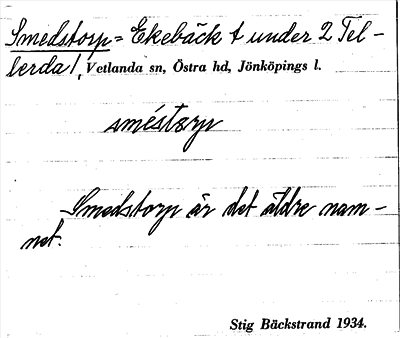 Smedstorp = Ekebäck t under 2 Tel-
lerda!, Vetlanda sn, Östra hd, Jönköpings l.
sméstɷrp
Smedstorp är det äldre nam-
net.
Stig Bäckstrand 1934.